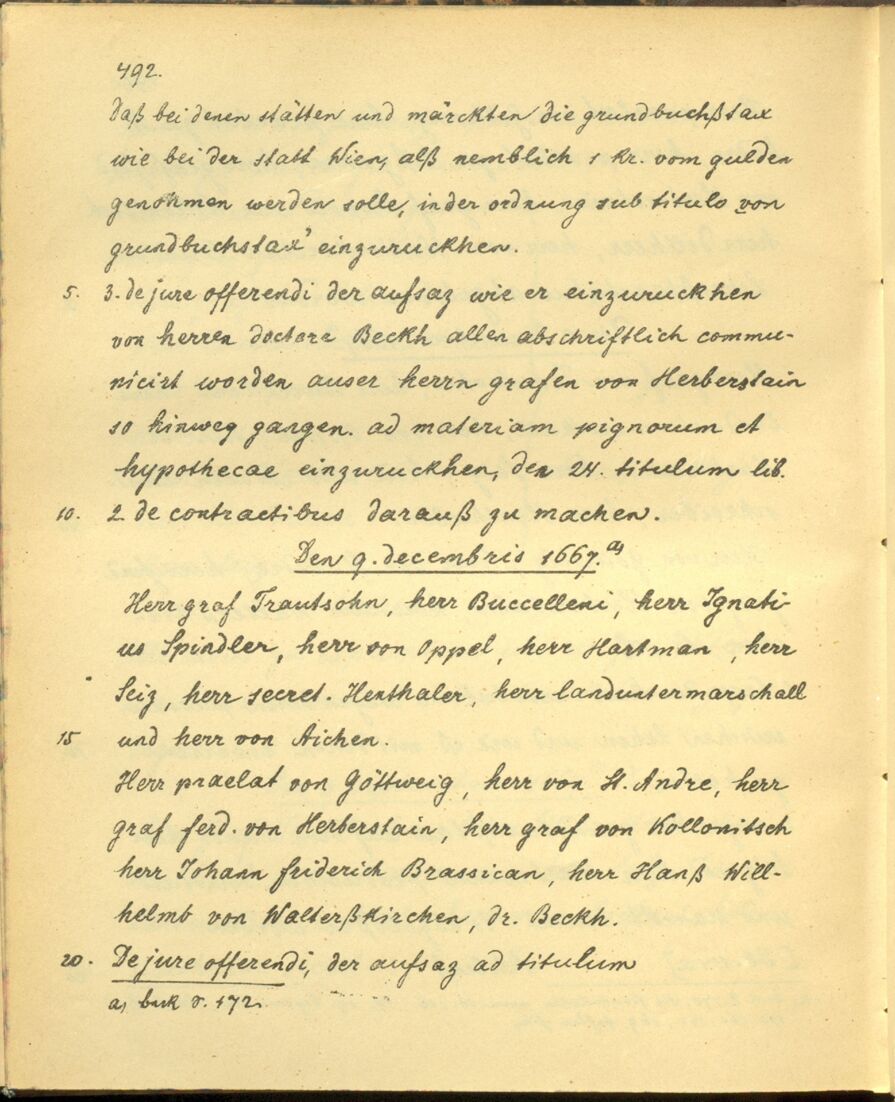 492.
Daß bei denen stätten und märckten die grundbuchßtax
wie bei der statt Wien, alß nemblich 1 kr. vom gulden
genohmen werden solle, in der ordnung sub titulo „von
grundbuchstax" einzuruckhen.
5. 3. de jure offerendi der aufsaz wie er einzuruckhen
von herren doctore Beckh allen abschriftlich commu-
nicirt worden auser herrn grafen von Herberstain
so hinweg gangen. ad materiam pignorum et
hypothecae einzuruckhen, den 24. titulum lib.
10. 2 de contractibus darauß zu machen.
Den 9. decembris 1667. a)
Herr graf Trautsohn, herr Buccelleni, herr Ignati-
us Spindler, herr von Oppel, herr Hartman, herr
Seiz, herr secret. Henthaler, herr landuntermarschall
15 und herr von Aichen.
Herr praelat von Göttweig, herr von St. Andre, herr
graf ferd. von Herberstain, herr graf von Kollonitsch
herr Johann friderich Brassican, herr Hanß Will-
helmb von Walterßkirchen, dr. Beckh.
20. De jure offerendi, der aufsaz ad titulum
a) 172.